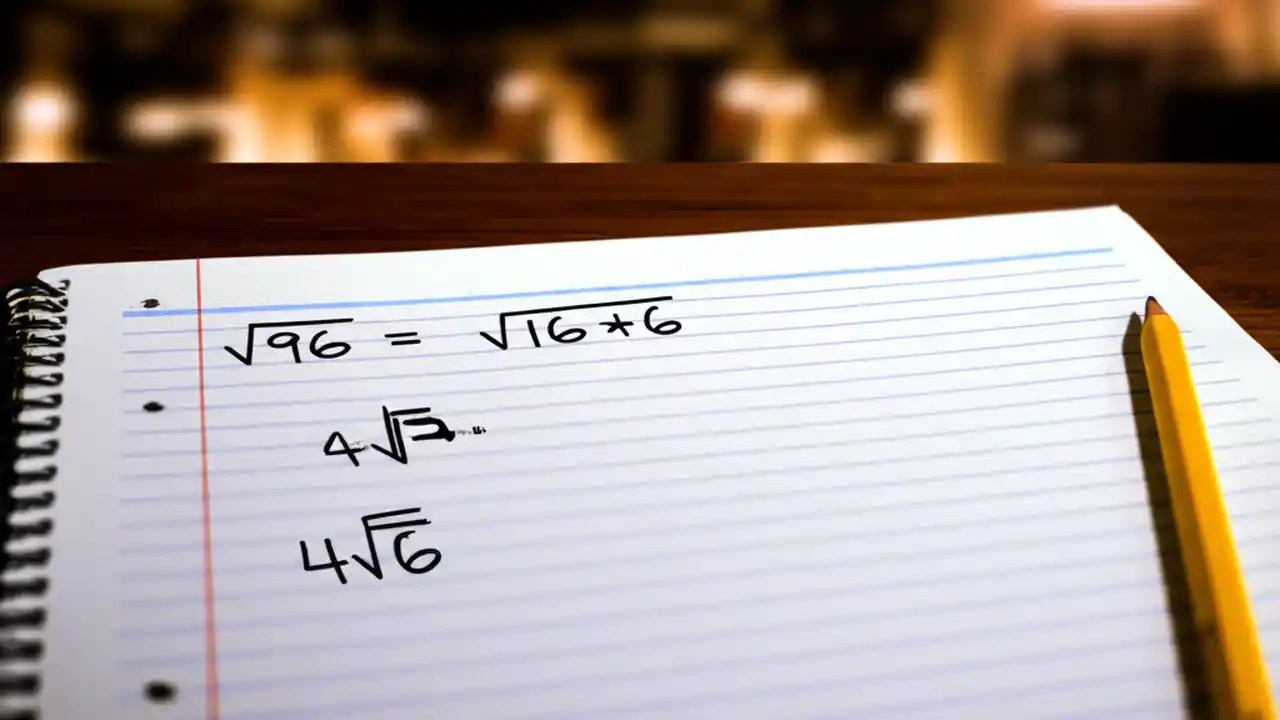 √96 = √16 * 6
4√
4√6